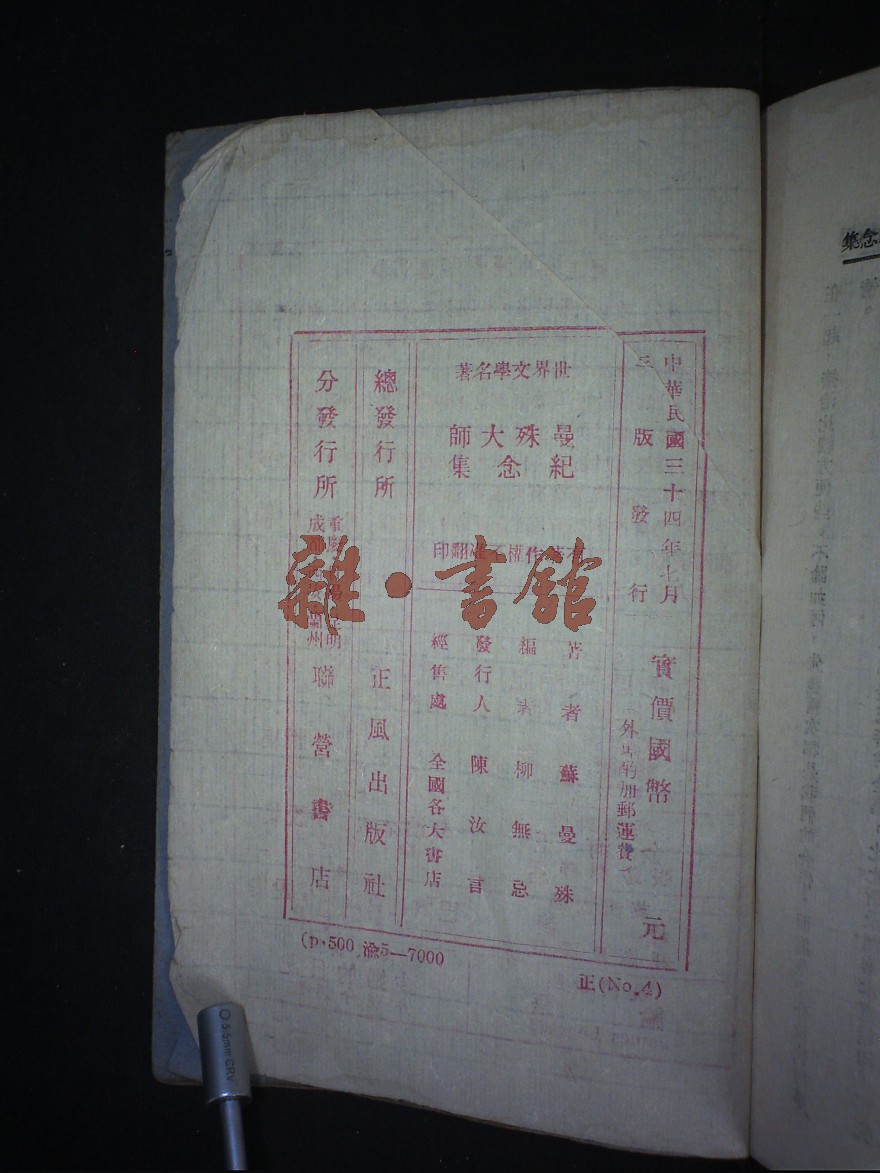 中華民國三十四年七月
三版發行
實價國幣 元
外埠酌加郵運費
世界文學名著
曼殊大師
紀念集
有著作權不准翻印
著者蘇曼殊
編者柳無忌
發行人陳汝言
經售處 全國各大書店
總發行所 正風出版社
分發行所
聯營書店
(p·500 渝5—7000
正(No.4)
雜·書館
念集
5.5mm CRV